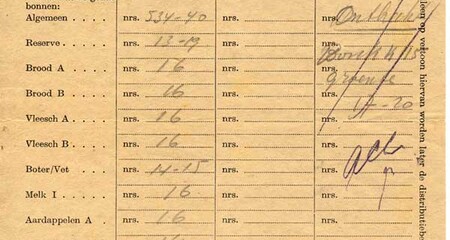 bonnen:
Algemeen . . . . nrs. 534-40 nrs. nrs.
Reserve . . . . nrs. 13-19 nrs. nrs. 15
Brood A . . . . nrs. 16 nrs. nrs. Groente
Brood B . . . . nrs. 16 nrs. nrs. 17-20
Vleesch A . . . . nrs. 16 nrs. nrs.
Vleesch B . . . . nrs. 16 nrs. nrs.
Boter/Vet . . . . nrs. 14-15 nrs. nrs.
Melk I . . . . nrs. 16 nrs. nrs.
Aardappelen A . nrs. 16 nrs. nrs.
op vertoon hiervan worden later de distributiebe